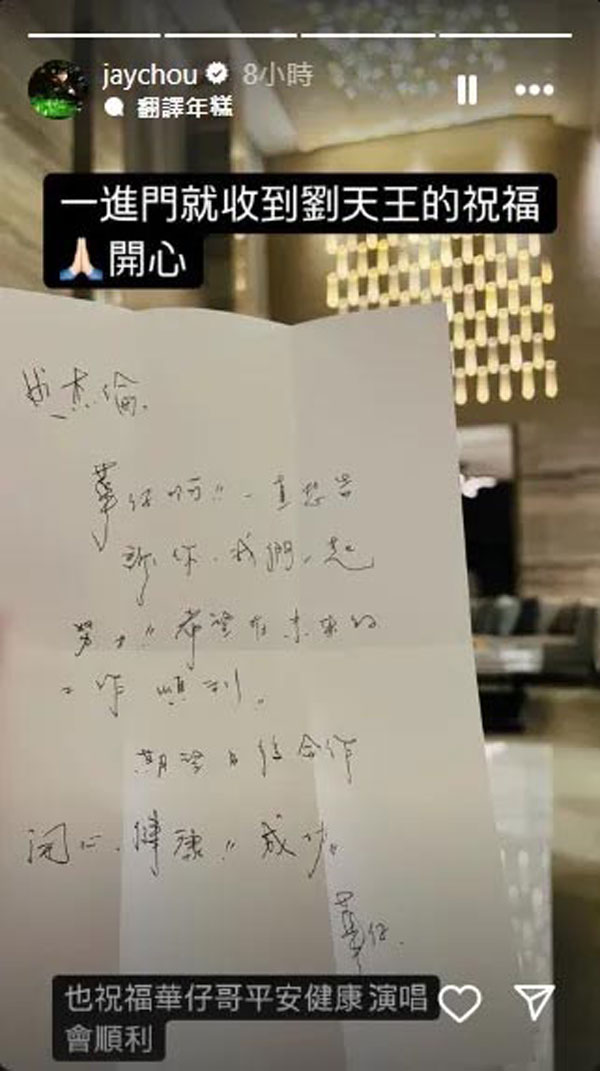 jaychou 8小時
翻譯年糕
一進門就收到劉天王的祝福
🙏🏻開心
杰倫.
華仔 !! 一直想告
訴你.我們一起
努力!! 希望在未來的
工作順利.
期望日後合作
開心.健康!! 成功!!
華仔.
也祝福華仔哥平安健康 演唱
會順利